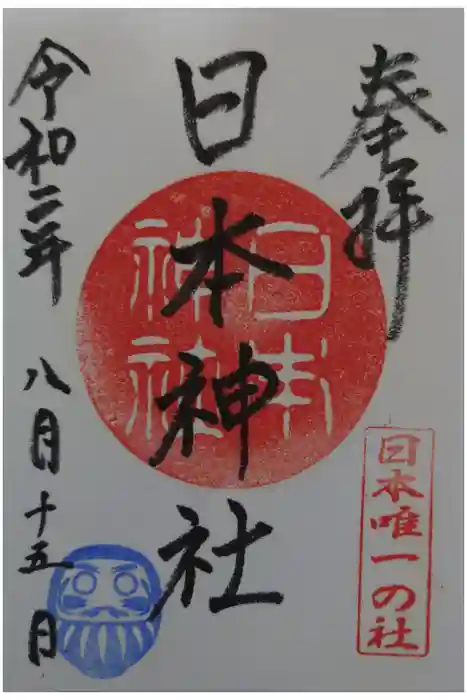 奉拝
日本唯一の社
日本神社
日本神社
令和二年 八月十五日